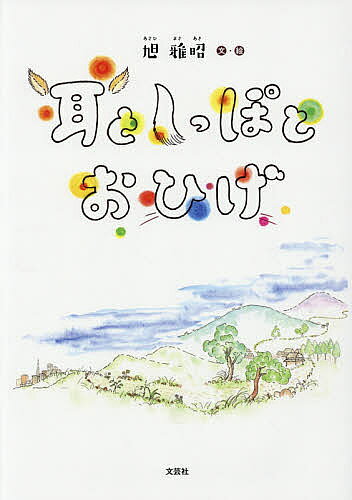 あさひ まさ あき
旭 雅昭 文・絵
耳としっぽと
おひげ
文芸社